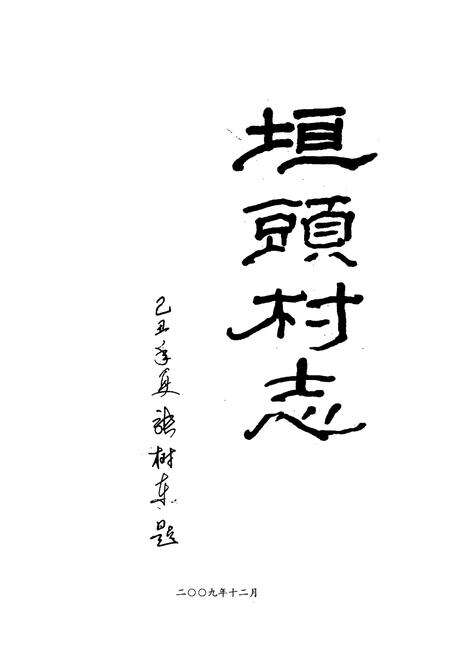 垣頭村志
己丑年夏 張树东 題
二〇〇九年十二月